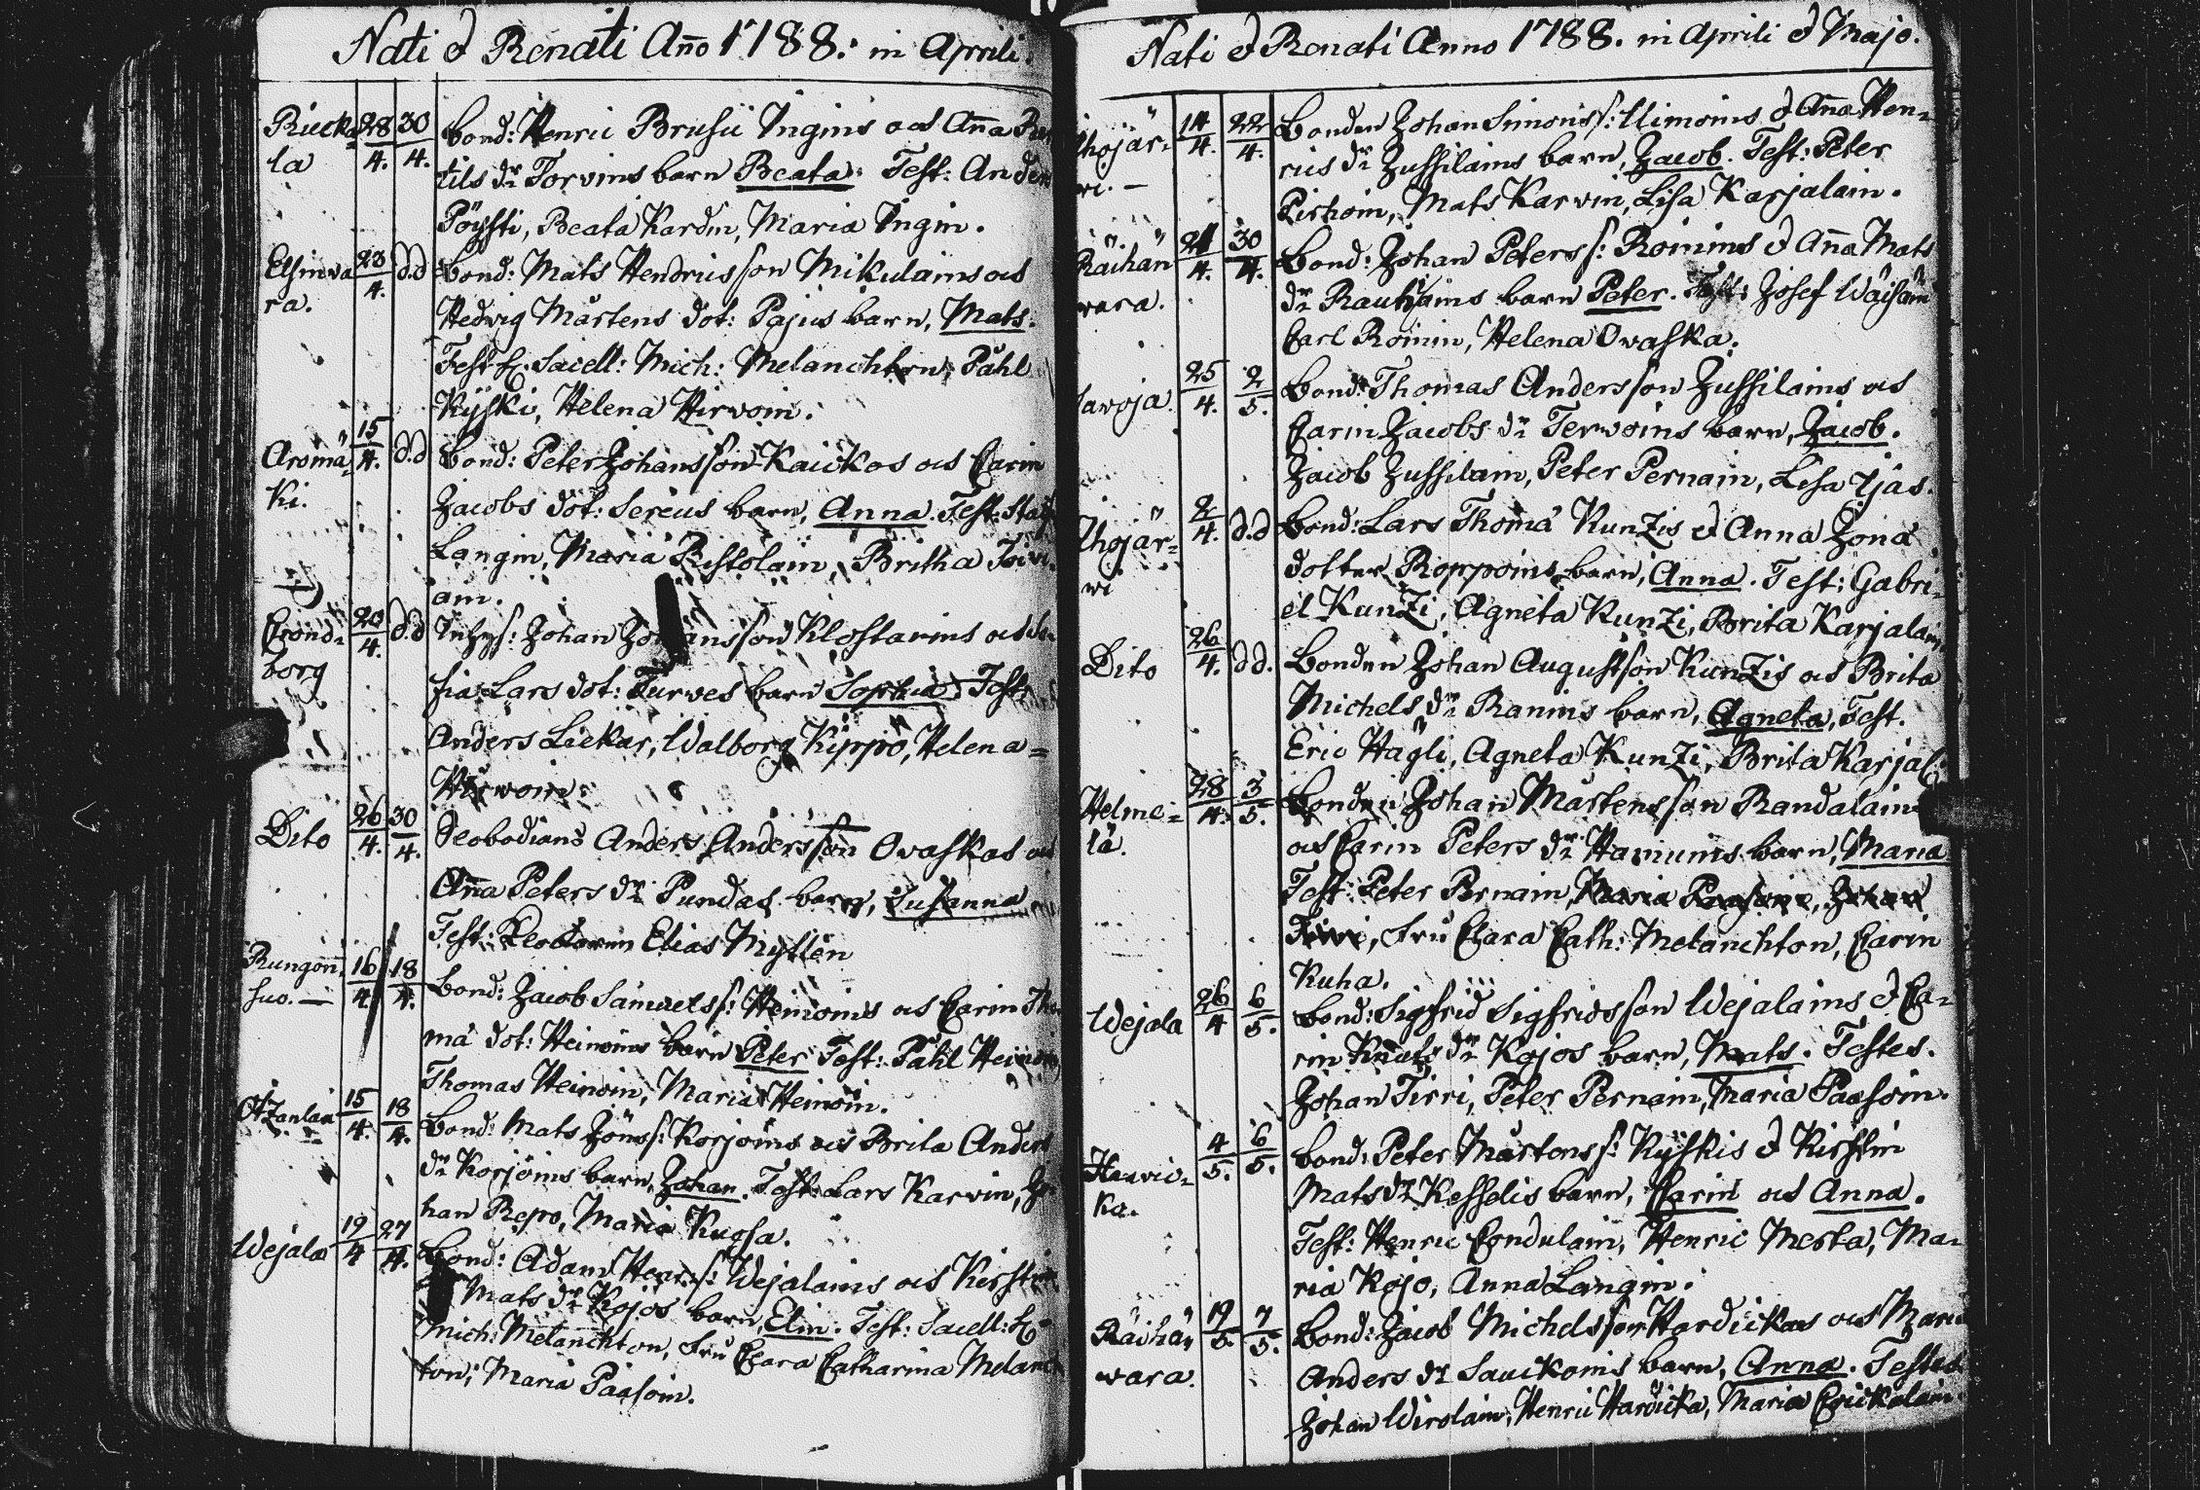 Nati & Renati Año 1788. in Aprili.
Riecka
la
28/4. 30/4.
Bond: Henric Brusii Ingins och Aña
tils dr Torvins barn Beata. Test: Anders
Pöysti, Beata Kardin, Maria Ingin.
Elsinva
ra.
23/4. d.d
Bond: Mats Hendricsson Mikulains och
Hedvig Mårtens dot: Pajus barn, Mats.
Test: Sacell: Mich: Melanchton, Påhl
Kyski, Helena Hirvoin.
Aromä
ki.
15/4. d.d
Bond: Peter Johansson Kaickos och Carin
Jacobs dot: Sereus barn, Anna. Test: Staf
Langin, Maria Ristolain, Britha Toivi
ain.
Crond-
borg
20/4. d.d
Inhys: Johan Johansson Klostarins och So
fia Lars dot: Turves barn Sophia. Test:
Anders Liekar, Walborg Kippo, Helena
Hirwoin.
Dito
26/4. 30/4.
Slobodians Anders Andersson Ovaskas och
Aña Peters dr Pundas barn, Susanna
Test: Elias Myllén
Rungon
suo.
16/4. 18/4.
Bond: Jacob Samuels s: Heinoins och Carin Tho
mä dot: Heinoins barn Peter Test: Påhl Heinoin
Thomas Heinoin, Maria Heinoin.
Otzanlax
15/4. 18/4.
Bond: Mats Jöns s: Korjoins och Brita Anders
dr Korjoins barn, Johan. Test: Lars Karvin, Jo
han Repo, Maria Kuosa.
Wejala
19/4 27/4.
Bond: Adam Henr. s: Wejalains och Kirstin
Mats dr Kojos barn, Elin. Test: Sacell:
Mich: Melanchton, fru Clara Catharina Melanch
ton, Maria Paasoin.
Nati & Renati Anno 1788. in Aprili & Majo.
Ihojär-
vi.
14/4. 22/4.
Bonden Johan Simons s: Uimoins & Aña Hen-
rics dr Jussilains barn, Jacob. Test: Peter
Pirhoin, Mats Karvin, Lisa Karjalain.
Räihän
vara.
21/4. 30/4.
Bond: Johan Peters s: Roinins & Aña Mats
dr Rautiains barn Peter. Test: Josef Wäisäin
Carl Roinin, Helena Ovaska.
Savoja.
25/4. 2/5.
Bond: Thomas Andersson Jussilains och
Carin Jacobs dr Tervoins barn, Jacob.
Jacob Jussilain, Peter Pernain, Lisa Ijäs.
Ihojär-
vi
2/4. d.d
Bond: Lars Thomä Kunzis & Anna Jönä
dotter Roppoins barn, Anna. Test: Gabri-
el Kunzi, Agneta Kunzi, Brita Karjalain
Dito
26/4. dd.
Bonden Johan Augustson Kunzis och Brita
Michels dr Ranins barn, Agneta, Test.
Eric Hägli, Agneta Kunzi, Brita Karjal:
Helme-
lä.
28/4. 3/5.
Bonden Johan Mårtensson Randalains
och Carin Peters dr Haniunis barn, Maria
Test: Peter Pernain, Maria Paasoin, Johan
Tirri, fru Clara Cath: Melanchton, Carin
Kuha.
Wejala
26/4 6/5.
Bond: Sigfrid Sigfridsson Wejalains & Ca-
rin Knuts dr Kojos barn, Mats. Testes.
Johan Tirri, Peter Pernain, Maria Paasoin.
Harvic-
ka.
4/5. 6/5.
Bond: Peter Mårtens s: Kyskis & Kirstin
Mats dr Kesselis barn, Carin och Anna.
Test: Henric Condulain, Henric Mesta, Ma-
ria Kojo, Anna Langin.
Räihän
vara.
19/5. 7/5.
Bond: Jacob Michelsson Hardickas och Maria
Anders dr Sauckoins barn, Anna. Testes
Johan Wirolain, Henric Hardicka, Maria Erickalain.